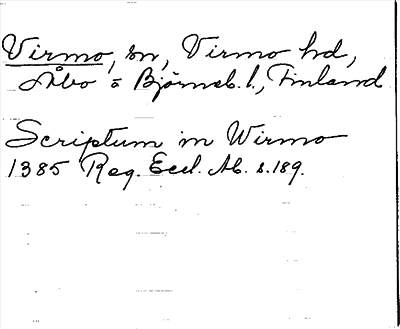 Virmo, sn, Virmo hd,
Åbo o Björneb. l., Finland
Scriptum in Wirmo
1385 Reg. Eccl. Ab. s. 189.